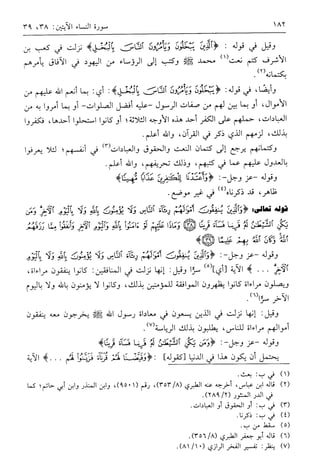 ١٨٢
سورة النساء الآيتين: ٣٨، ٣٩
وقيل في قوله: ﴿ٱلَّذِينَ يَبۡخَلُونَ وَيَأۡمُرُونَ ٱلنَّاسَ بِٱلۡبُخۡلِ﴾ نزلت في كعب بن
الأشرف كتم نعت(١) محمد ﷺ وكتب إلى الرؤساء من اليهود في الآفاق يأمرهم
بكتمانه(٢).
وأيضًا، في قوله: ﴿ٱلَّذِينَ يَبۡخَلُونَ وَيَأۡمُرُونَ ٱلنَّاسَ بِٱلۡبُخۡلِ﴾: أي: بما أنعم الله عليهم من
الأموال، أو بما بين لهم من صفات الرسول -عليه أفضل الصلوات- أو بما أمروا به من
العبادات، حملهم على الكفر أحد هذه الأوجه الثلاثة؛ أو كانوا استحلوا أحدها، فكفروا
بذلك، لزمهم الذي ذكر في القرآن، والله أعلم.
وكتمانهم يرجع إلى كتمان النعت والحقوق والعبادات(٣) في أنفسهم؛ لئلا يعرفوا
بالعدول عليهم عما في كتبهم، وذلك تحريفهم، والله أعلم.
وقوله -عز وجل-: ﴿وَأَعۡتَدۡنَا لِلۡكَٰفِرِينَ عَذَابٗا مُّهِينٗا﴾
ظاهر، قد ذكرناه(٤) في غير موضع.
قوله تعالى: ﴿وَٱلَّذِينَ يُنفِقُونَ أَمۡوَٰلَهُمۡ رِئَآءَ ٱلنَّاسِ وَلَا يُؤۡمِنُونَ بِٱللَّهِ وَلَا بِٱلۡيَوۡمِ ٱلۡأٓخِرِۗ وَمَن
يَكُنِ ٱلشَّيۡطَٰنُ لَهُۥ قَرِينٗا فَسَآءَ قَرِينٗا ﴿٣٨﴾ وَمَاذَا عَلَيۡهِمۡ لَوۡ ءَامَنُواْ بِٱللَّهِ وَٱلۡيَوۡمِ ٱلۡأٓخِرِ وَأَنفَقُواْ مِمَّا رَزَقَهُمُ
ٱللَّهُۚ وَكَانَ ٱللَّهُ بِهِمۡ عَلِيمًا ﴿٣٩﴾﴾
وقوله -عز وجل-: ﴿وَٱلَّذِينَ يُنفِقُونَ أَمۡوَٰلَهُمۡ رِئَآءَ ٱلنَّاسِ وَلَا يُؤۡمِنُونَ بِٱللَّهِ وَلَا بِٱلۡيَوۡمِ
ٱلۡأٓخِرِ ...﴾ الآية [أي](٥) سرًّا وقيل: إنها نزلت في المنافقين: كانوا ينفقون مراءاة،
ويصلون مراءاة كانوا يظهرون الموافقة للمؤمنين بذلك، وكانوا لا يؤمنون بالله ولا باليوم
الآخر سرًّا(٦).
وقيل: إنها نزلت في الذين يسعون في معاداة رسول الله ﷺ يخرجون معه ينفقون
أموالهم مراءاة للناس، يطلبون بذلك الرياسة(٧).
وقوله -عز وجل-: ﴿وَمَن يَكُنِ ٱلشَّيۡطَٰنُ لَهُۥ قَرِينٗا فَسَآءَ قَرِينٗا﴾
يحتمل أن يكون هذا في الدنيا [كقوله]: ﴿وَقَيَّضۡنَا لَهُمۡ قُرَنَآءَ فَزَيَّنُواْ لَهُم ...﴾ الآية
(١) في ب: بعث.
(٢) قاله ابن عباس، أخرجه عنه الطبري (٣٥٣/٨)، رقم (٩٥٠١)، وابن المنذر وابن أبي حاتم؛ كما
في الدر المنثور (٢٨٩/٢).
(٣) في ب: أو الحقوق أو العبادات.
(٤) في ب: ذكرنا.
(٥) سقط من ب.
(٦) قاله أبو جعفر الطبري (٣٥٦/٨).
(٧) ينظر: تفسير الفخر الرازي (٨١/١٠).